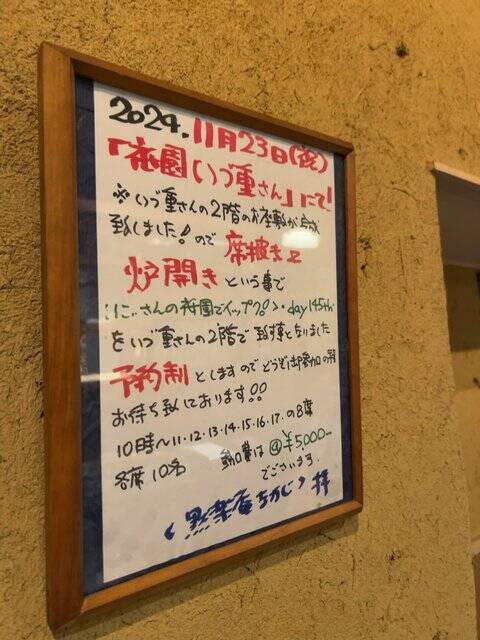 2024. 11月23日(祝)
「祇園いづ重さん」にて!
※いづ重さんの2階のお座敷が完成
致しました!ので 席披きと
炉開き という事で
にぃさんの祇園でイップク♪・day145th
をいづ重さんの2階で致す事となりました
予約制 としますのでどうぞ御参加の程
お待ち致しております!!
10時〜11・12・13・14・15・16・17.の8席
各席10名 参加費は ¥5,000-
でございます
拝